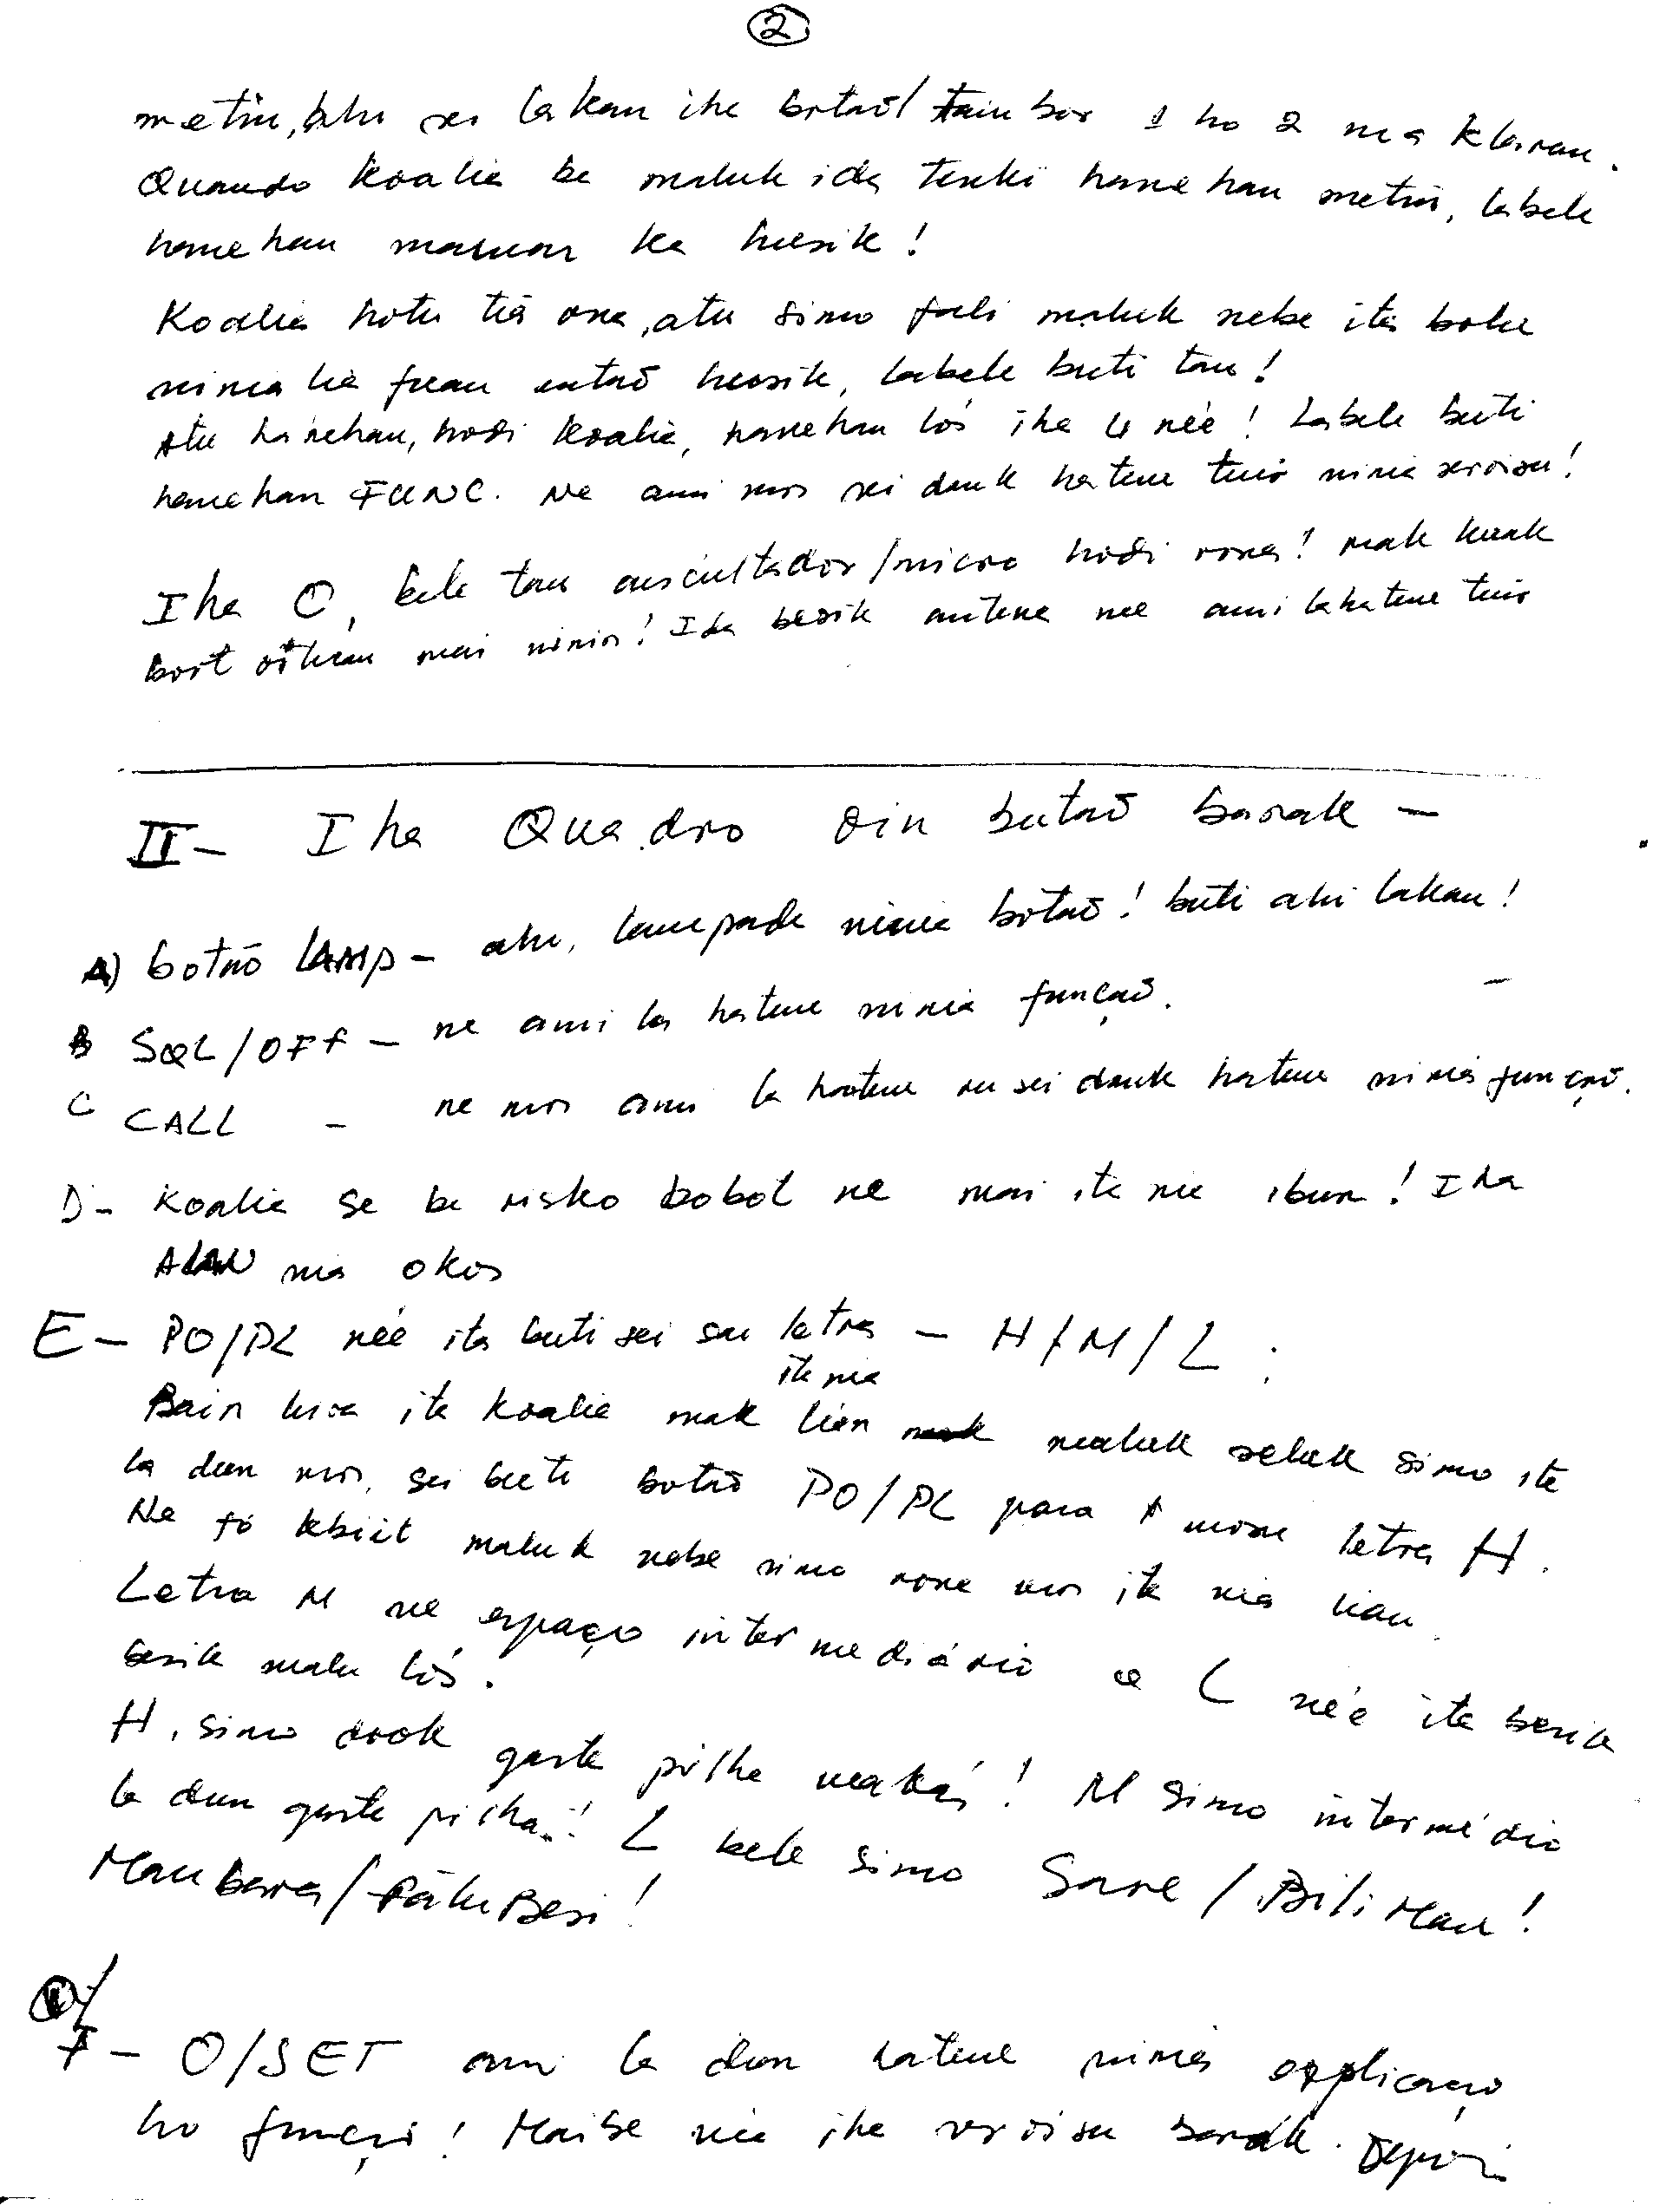 2
metin, ahi sei lakan iha botaõ/tambor 1 ho 2 nia klaran.
Quando koalia ba maluk ida tenki hanehan metin, labele
hanehan mamar ka husik!
Koalia hotu tiá ona, atu simo fali maluk nebe ita bolu
ninia lia fuan entaõ husik, labele buti tan!
Atu hanehan, hodi koalia, hanehan lós iha 4 née! Labele buti
hanehan FUNC. Ne ami mos sei dauk hatene tuir ninia servisu!
Iha O, bele tau auscultador/micro hodi rona! mak kuak
boot oituan mai ninin! Ida besik antena nee ami la hatene tuir
II - Iha Quadro oin butaõ barak -
A) botaõ LAMP - ahi, lampada ninia botaõ! buti ahi lakan!
B SQL/OFF - ne ami la hatene ninia funçaõ.
C CALL - ne mos ami la hatene sei dauk hatene ninia funçaõ.
D - Koalia se be risko bobot ne mai ita nia ibun! Ida
ALAN nia okos
E - PO/PL née ita buti sei sai letra - H/M/L;
Bain hira ita koalia mak lian ita nia maluk seluk simo ita
la dun mos, sei buti botaõ PO/PL para mosu letra H.
Ne fó kbiit maluk nebe simo rona mos ita nia lian.
Letra M ne espaço intermediário e L née ita besik
besik malu lós.
H, simo dook gasta pilha makás! M simo intermédio
la dun gasta pilha..! L bele simo Sare/BiliMau!
Maubara/FatuBesi!
F - O/SET ami la dun hatene ninia explicaçaõ
ho funçaõ! Maibe nia iha servisu barak. Depois